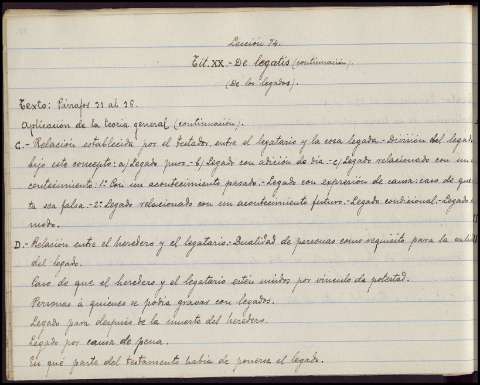 Lección 74.
Tit. XX.- De legatis (continuación).
(De los legados).
Texto: Párrafos 21 al 28.
Aplicación de la teoría general (continuación).
C.- Relación establecida por el testador, entre el legatario y la cosa legada.- División del legado
bajo este concepto: a/ Legado puro.- b/ Legado con adición de día.- c/ Legado relacionado con un a
contecimiento.- 1º Con un acontecimiento pasado.- Legado con expresión de causa: caso de que és
ta sea falsa.- 2º Legado relacionado con un acontecimiento futuro.- Legado condicional.- Legado
modo.
D.- Relación entre el heredero y el legatario.- Dualidad de personas como requisito para la
del legado.
Caso de que el heredero y el legatario estén unidos por vínculo de potestad.
Personas á quienes se podía gravar con legados.
Legado para después de la muerte del heredero.
Legado por causa de pena.
En qué parte del testamento había de ponerse el legado.